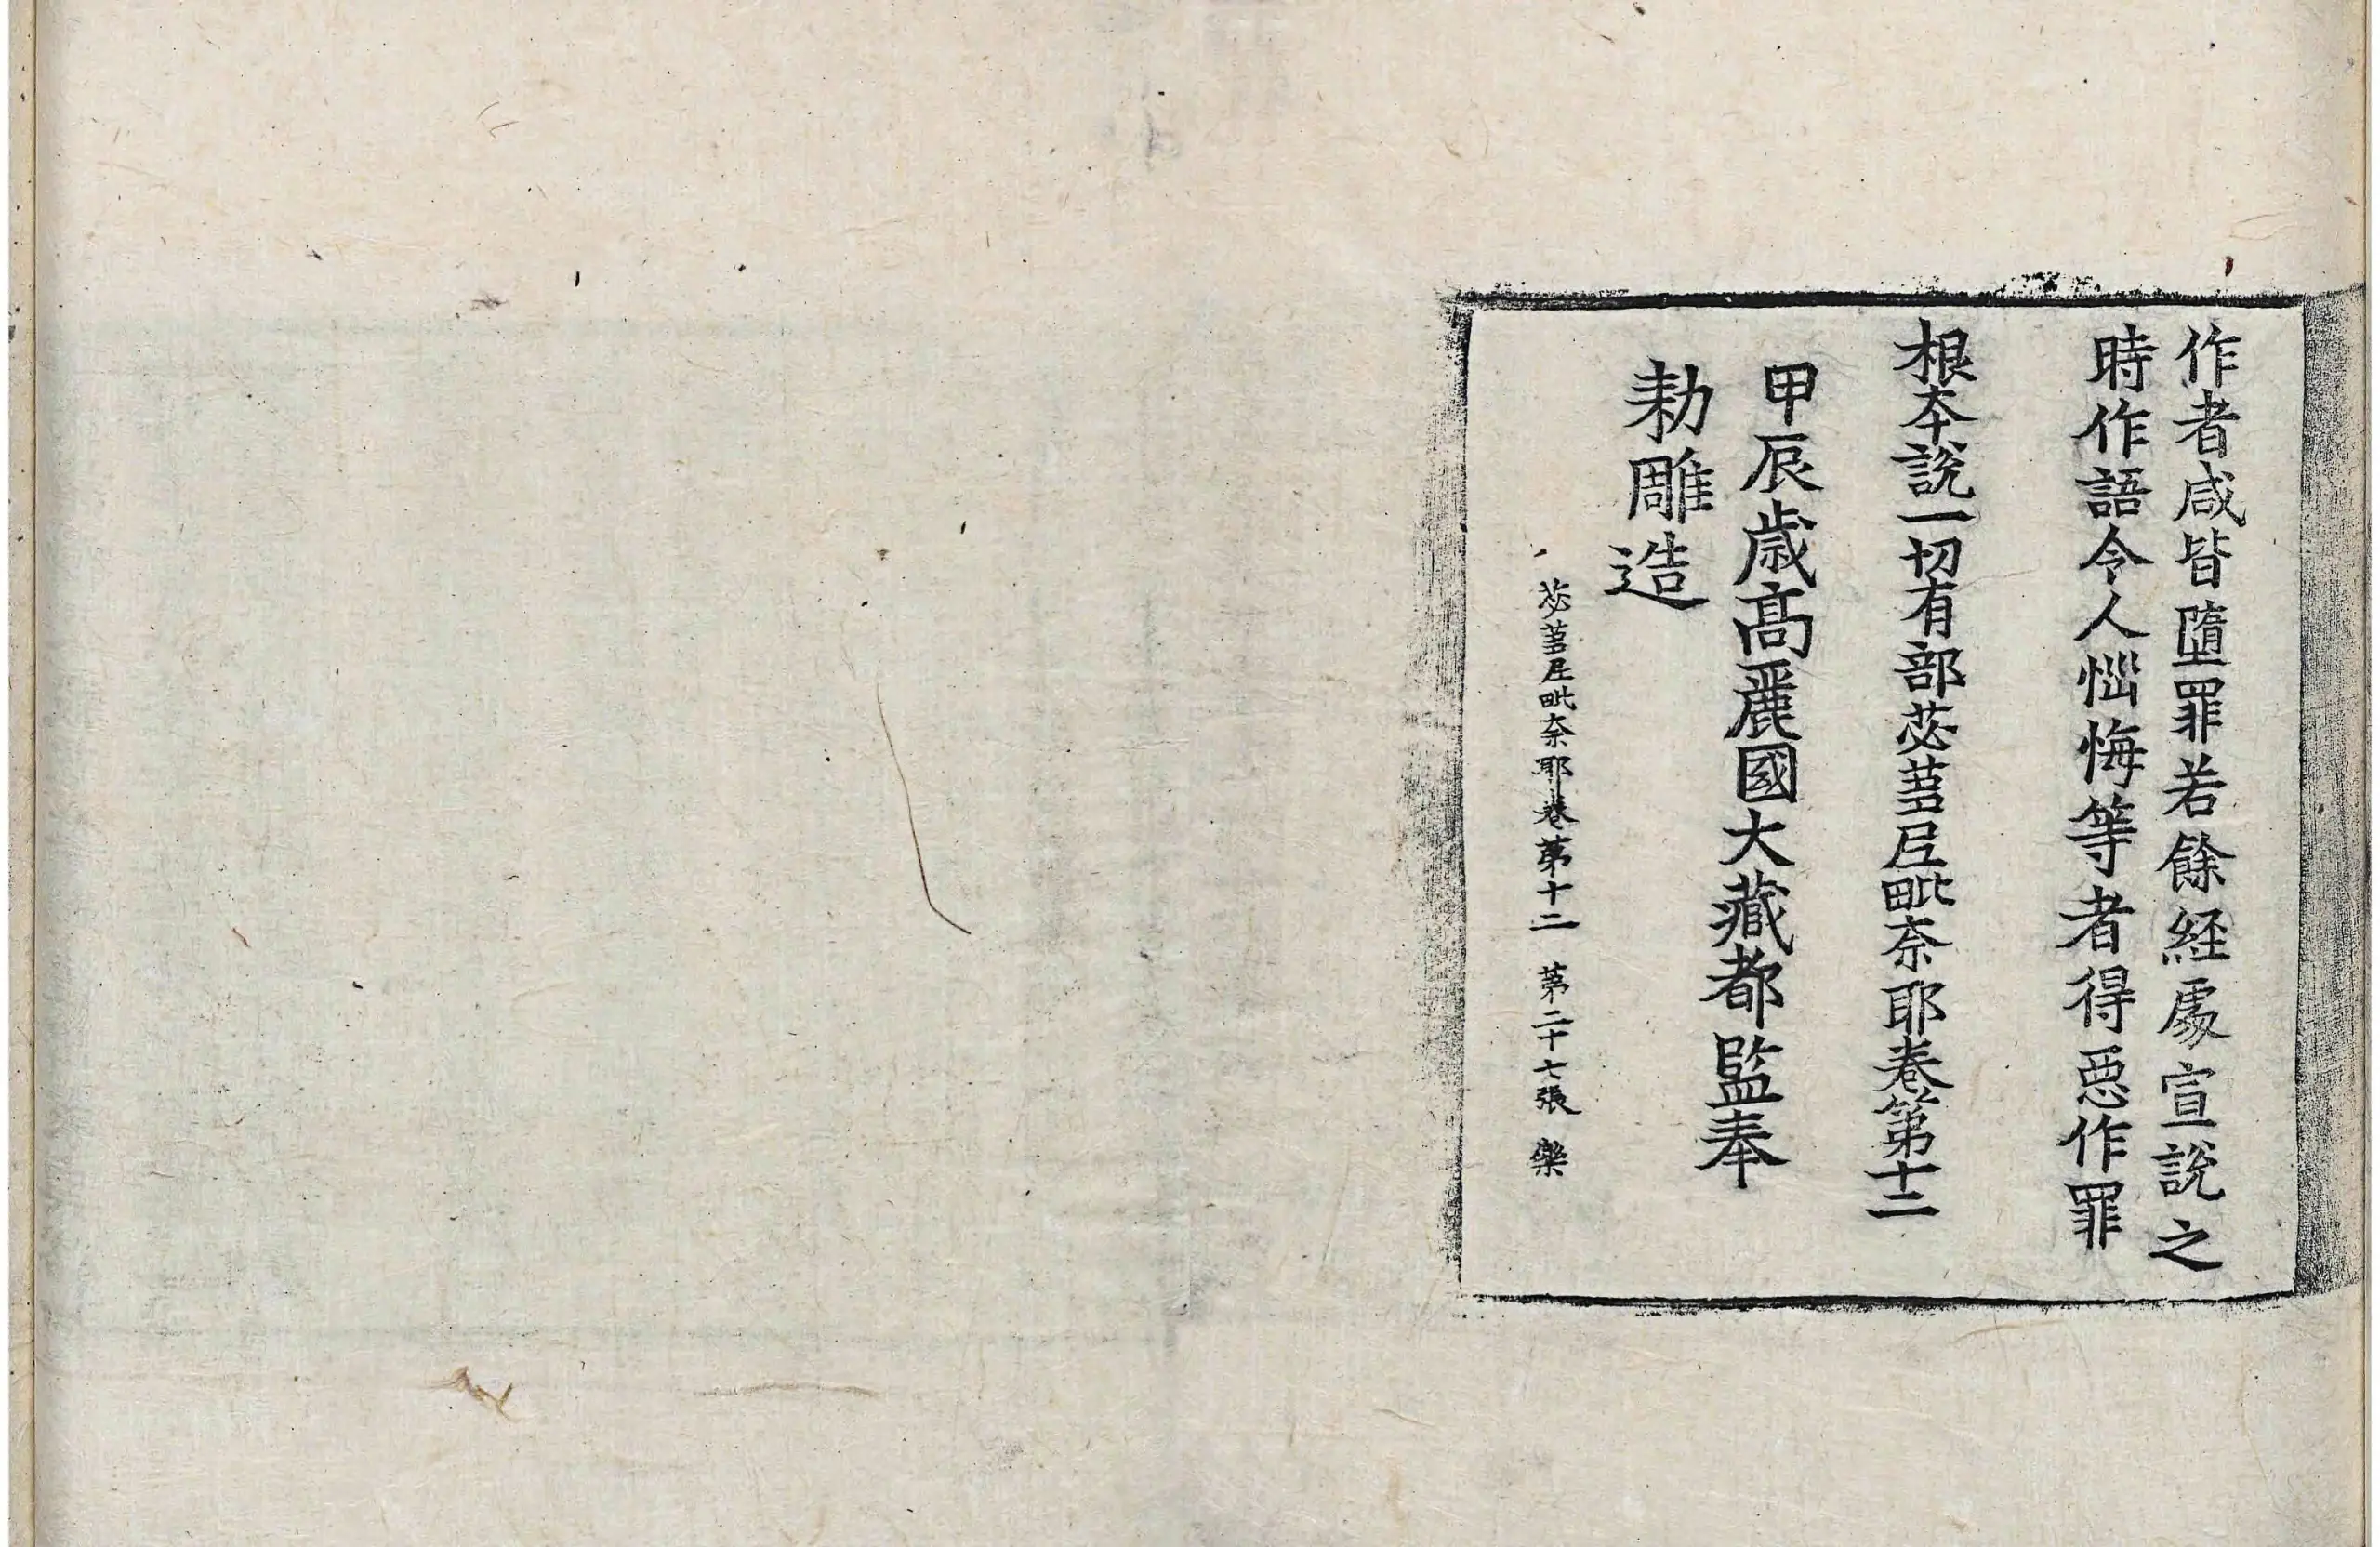 作者咸皆墮罪若餘経處宣說之
時作語令人惱悔等者得惡作罪
根本說一切有部苾蒭尼毗奈耶卷第十二
甲辰歲高麗國大藏都監奉
勅雕造
苾蒭尼毗奈耶卷第十二 第二十七張 樂